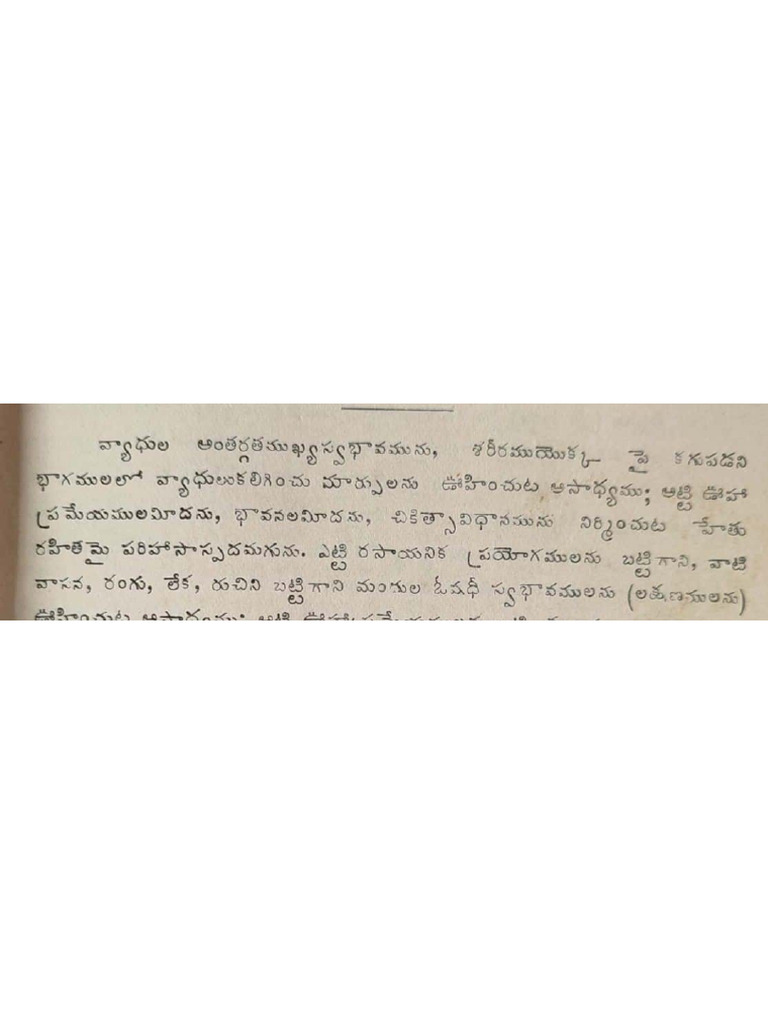 వ్యాధుల అంతర్గతముఖ్యస్వభావమును, శరీరముయొక్క పై కగుపడని
భాగములలో వ్యాధులుకలిగించు మార్పులను ఊహించుట అసాధ్యము; అట్టి ఊహా
ప్రమేయములమీదను, భావనలమీదను, చికిత్సావిధానమును నిర్మించుట హేతు
రహితమై పరిహాసాస్పదమగును. ఎట్టి రసాయనిక ప్రయోగములను బట్టిగాని, వాటి
వాసన, రంగు, లేక, రుచిని బట్టిగాని మందుల ఓషధీ స్వభావములను (లక్షణములను)
ఊహించుట అసాధ్యము; అట్టి